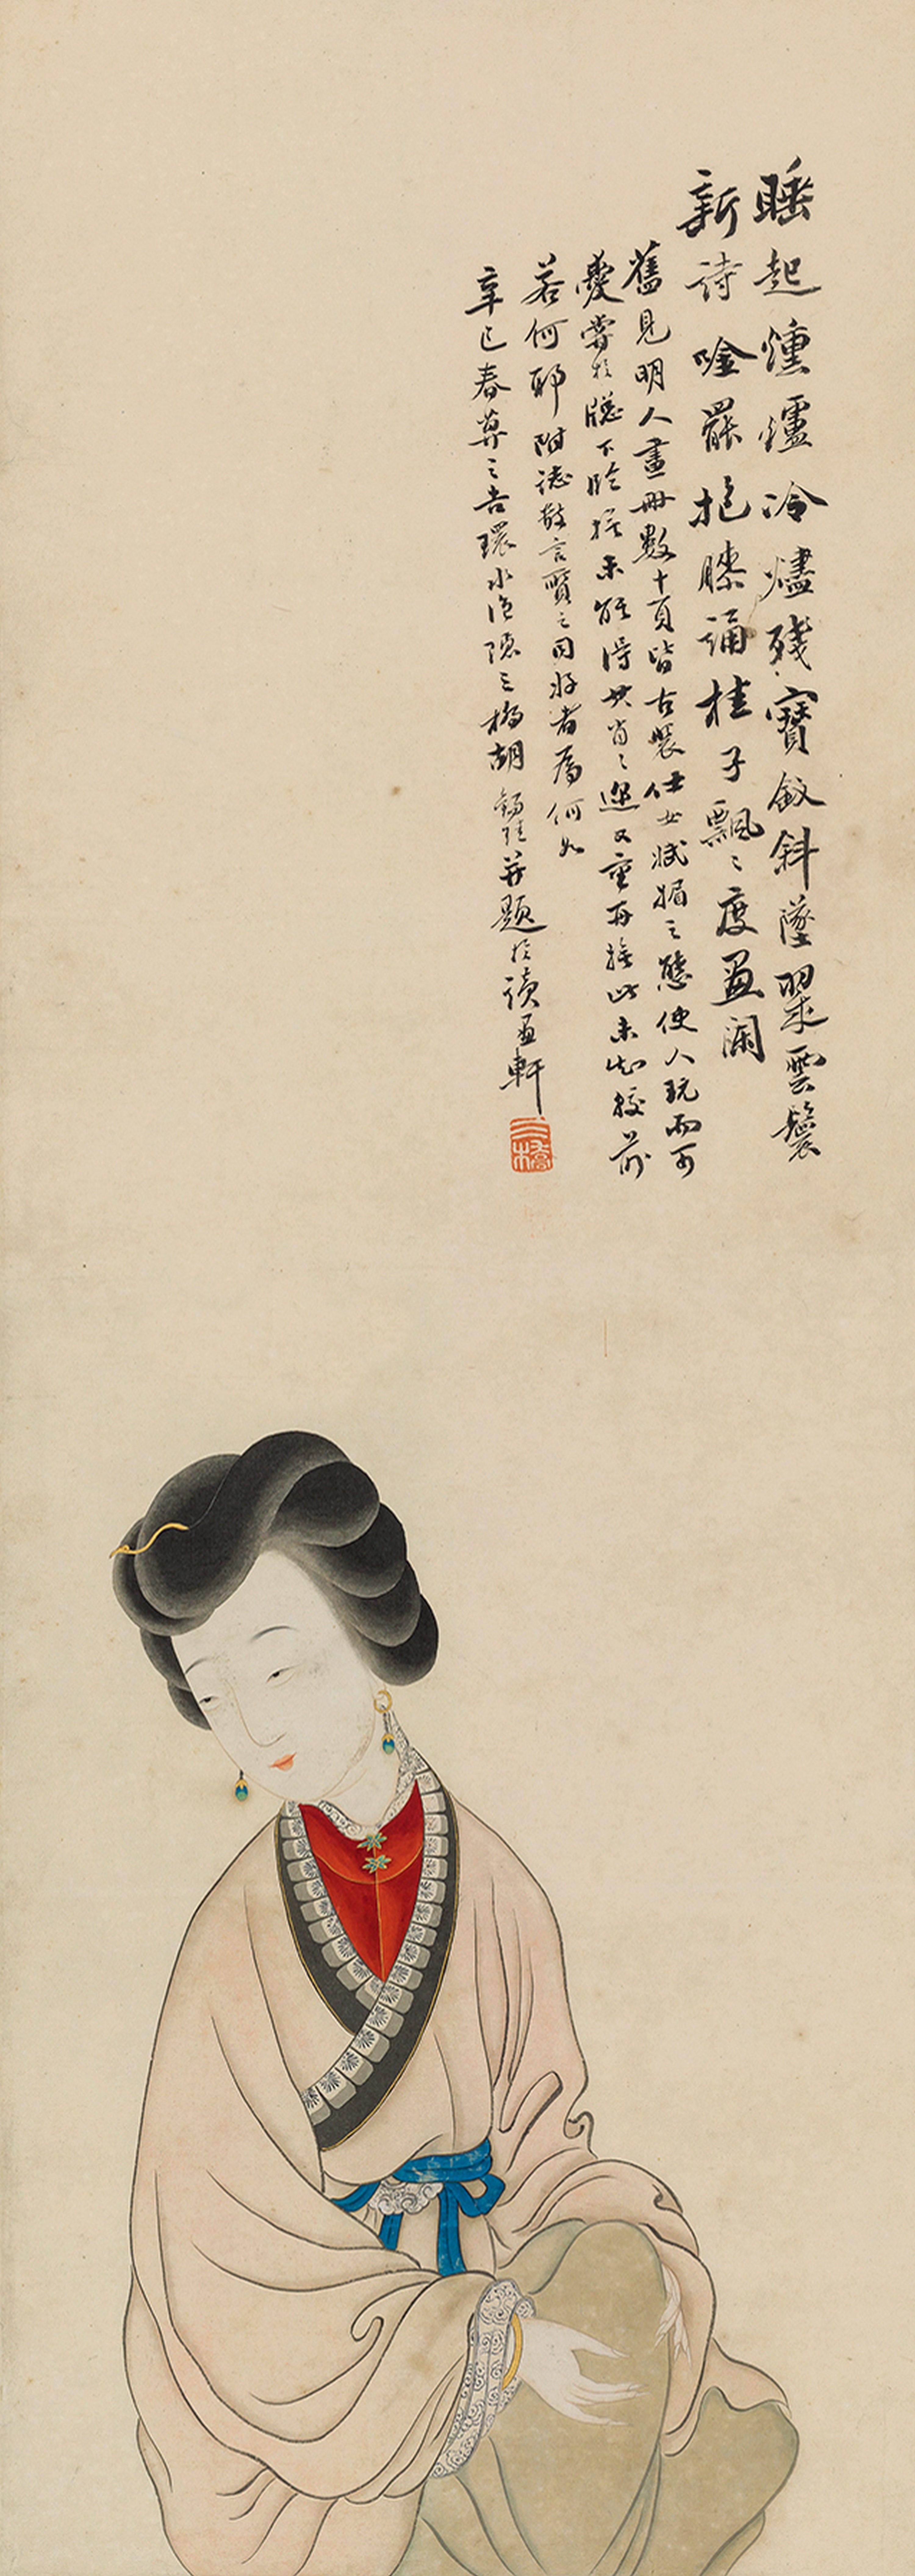 睡起爐冷燼殘寶釵斜墜翠雲鬟
新詩唫罷抱膝誦桂子飄〻度畫闌
舊見明人畫冊數十頁皆古裝仕女娬媚之態使人玩而可
愛嘗於牕下臨摹未能得其肖〻選又重再摹此未知較前
若何耶附誌數言質之同好者為何如
辛巳春暮之吉環水漁隱三橋胡錫珪并題於讀畫軒
三橋